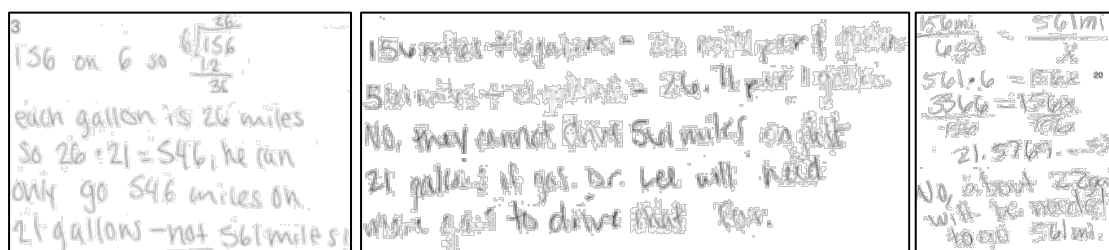 3
26
156 on 6 so 6)156
12
36
each gallon is 26 miles
so 26 · 21 = 546, he can
only go 546 miles on
21 gallons - not 561 miles!
156 miles ÷ 6 gallons = 26 miles per 1 gallon
561 miles ÷ = 26.71 per 1 gallon
No, they cannot drive 561 miles on just
21 gallons of gas. Dr. Lee will need
more gas to drive that
156mi 561mi
6 gas x
20
561·6 = 156x
3366 = 156x
21.5769
No, about 22 gas
will be needed
to go 561 mi.